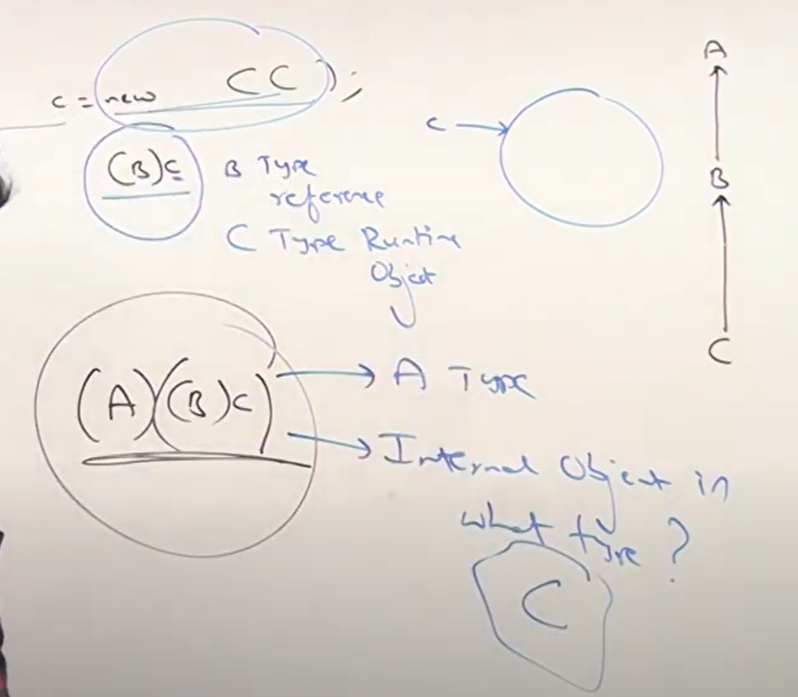 c = new CC);
(B)c B Type
reference
C Type Runtime
Object
c
A
B
C
(A)((B)c)
A Type
Internal Object in
what type?
C